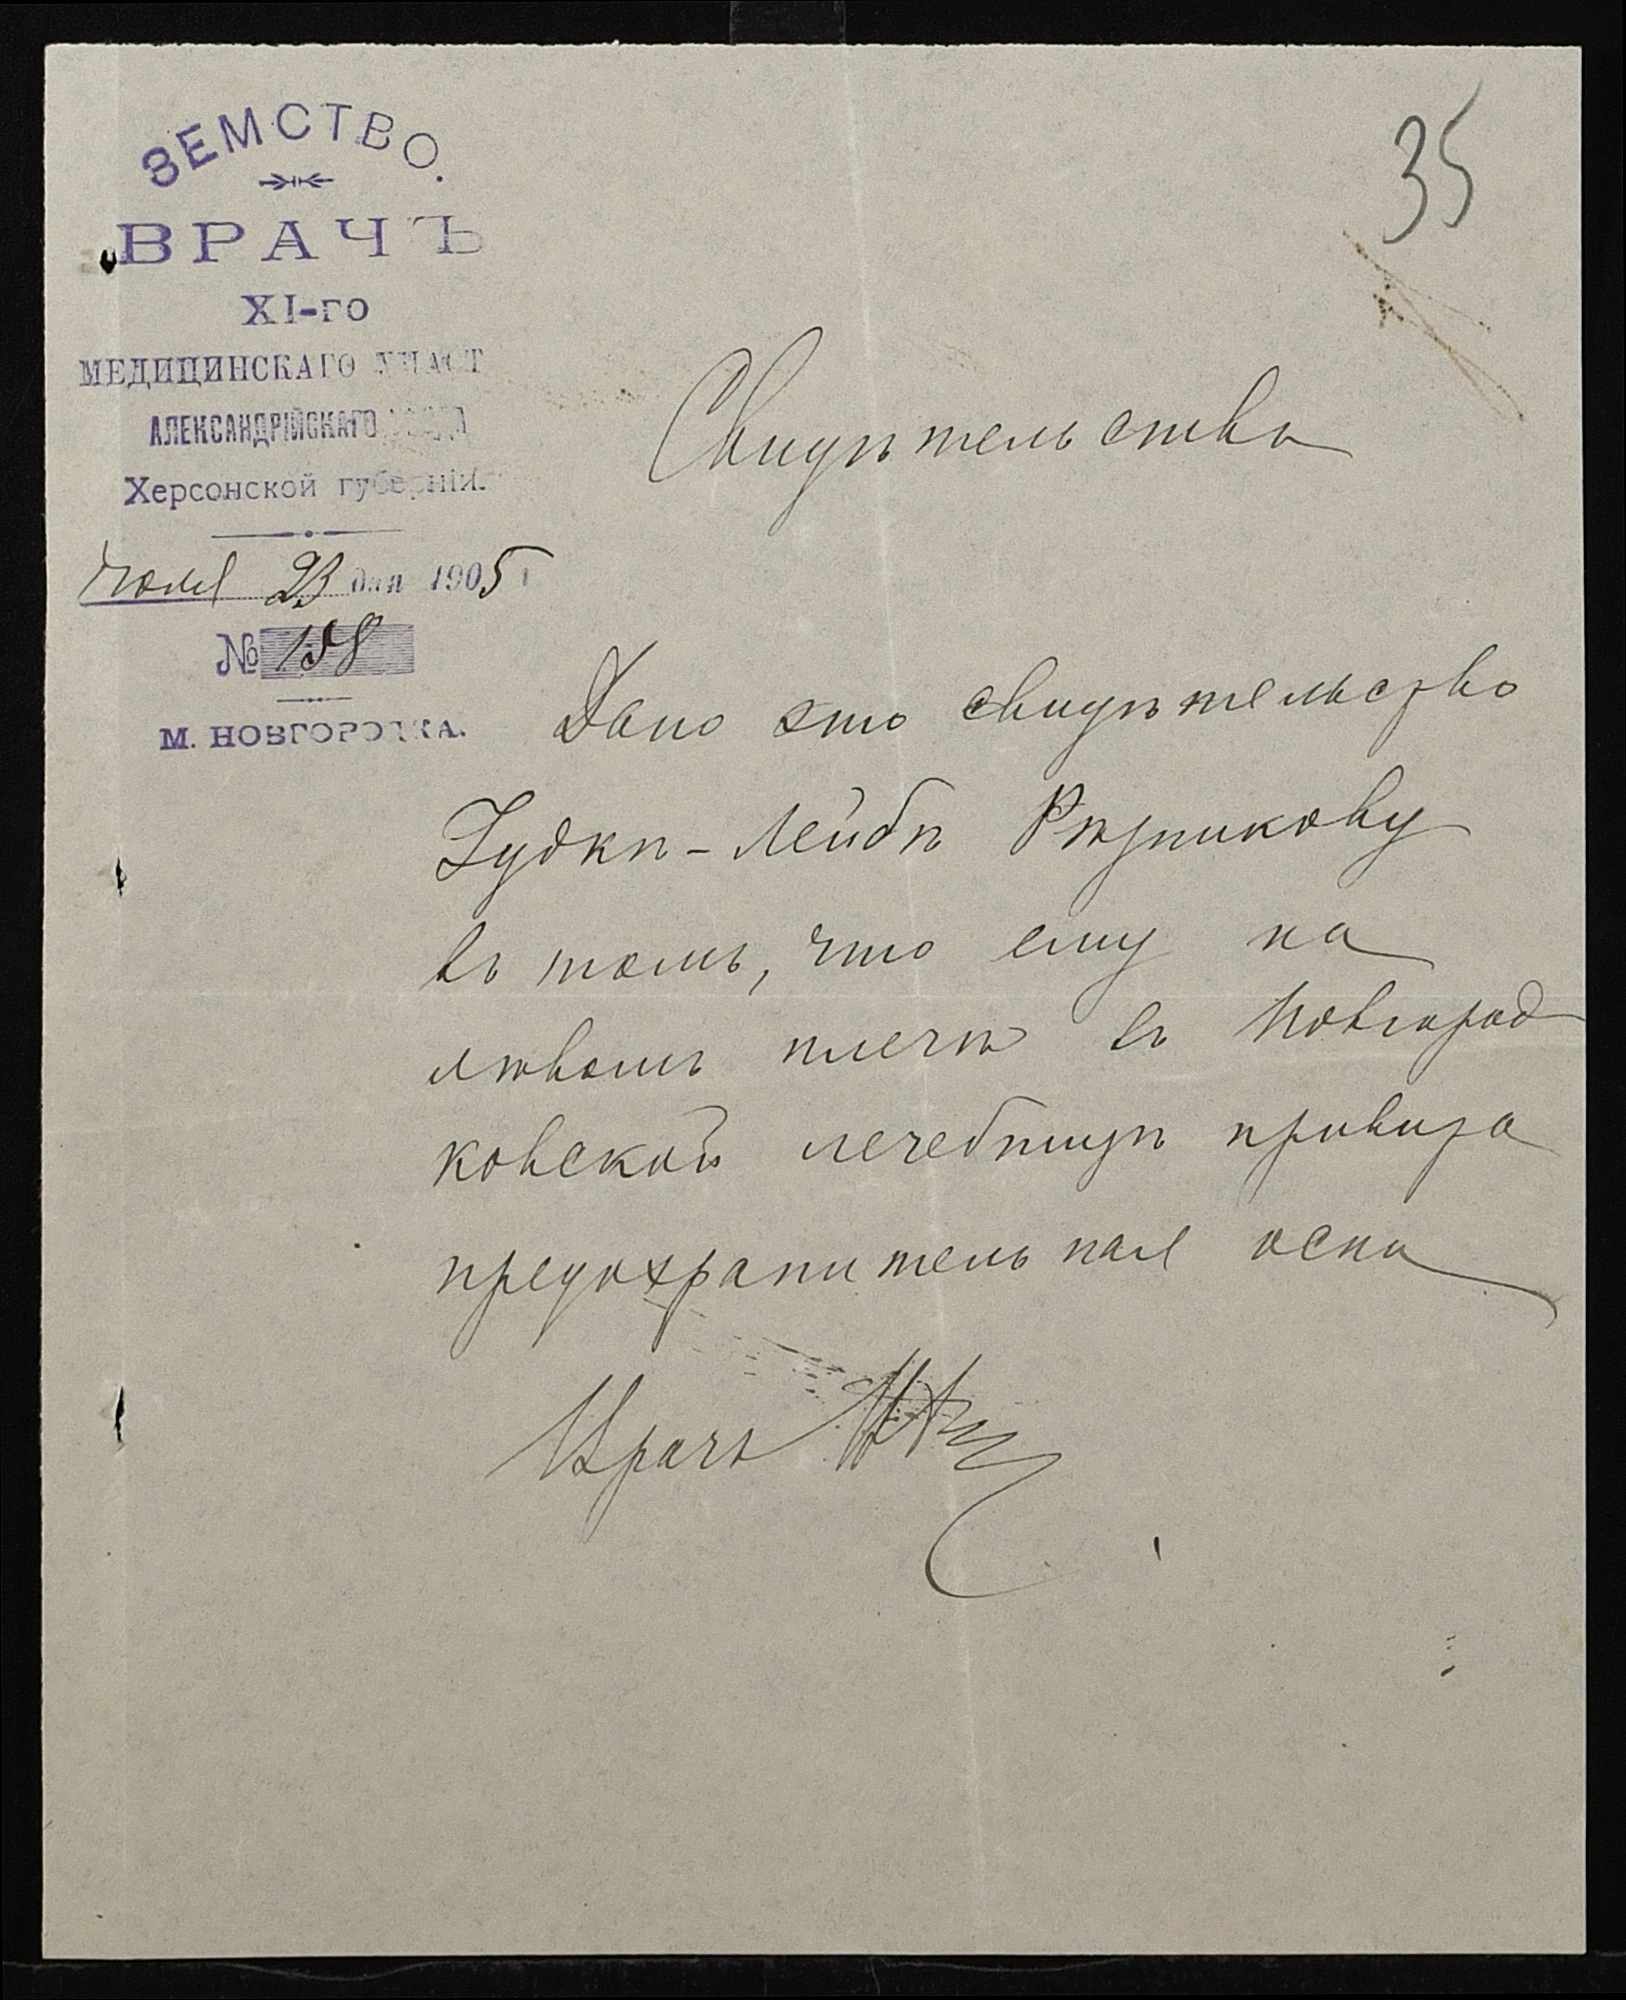 35
ЗЕМСТВО.
ВРАЧЪ
XI-го
МЕДИЦИНСКАГО УЧАСТ
АЛЕКСАНДРІЙСКАГО УѢЗДА
Херсонской губерніи.
Іюля 23 дня 1905 г
№ 158
М. НОВГОРОДКА.
Свидѣтельство
Дано это свидѣтельство
Зудкѣ-Лейбѣ Рѣзникову
въ томъ, что ему на
лѣвомъ плечѣ въ Новгород
ковской лечебницѣ привита
предохранительная оспа
Врачъ